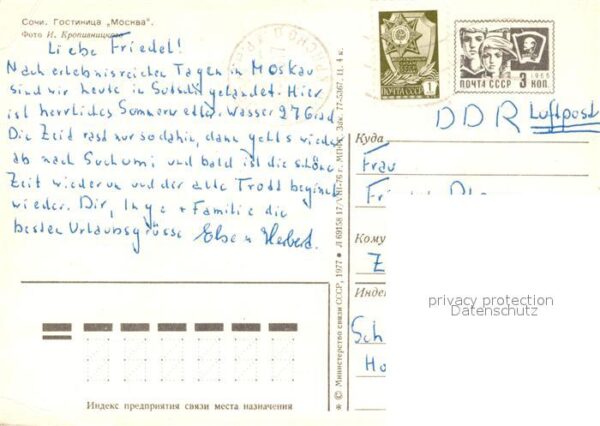 Сочи. Гостиница „Москва".
Фото И. Кропивницкого
Liebe Friedel!
Nach erlebnisreichen Tagen in Moskau
sind wir heute in Sotschi gelandet. Hier
ist herrliches Sommerwetter. Wasser 27 Grad
Die Zeit rast nur so dahin, dann geht's wieder
ab nach Suchumi und bald ist die schöne
Zeit wiederum und der alte Trott beginnt
wieder. Dir, Inge + Familie die
besten Urlaubsgrüsse Else u Herbert.
Индекс предприятия связи места назначения
* © Министерство связи СССР, 1977 * Л 69158 17/VIII-76 г. МПФГ. Зак. 77-5267. Ц. 4 к.
ПОЧТА СССР 1
1966
ПОЧТА СССР 3 КОП.
DDR Luftpost
Куда
Frau
Кому
Z
Индекс
Sch
Ho
privacy protection
Datenschutz